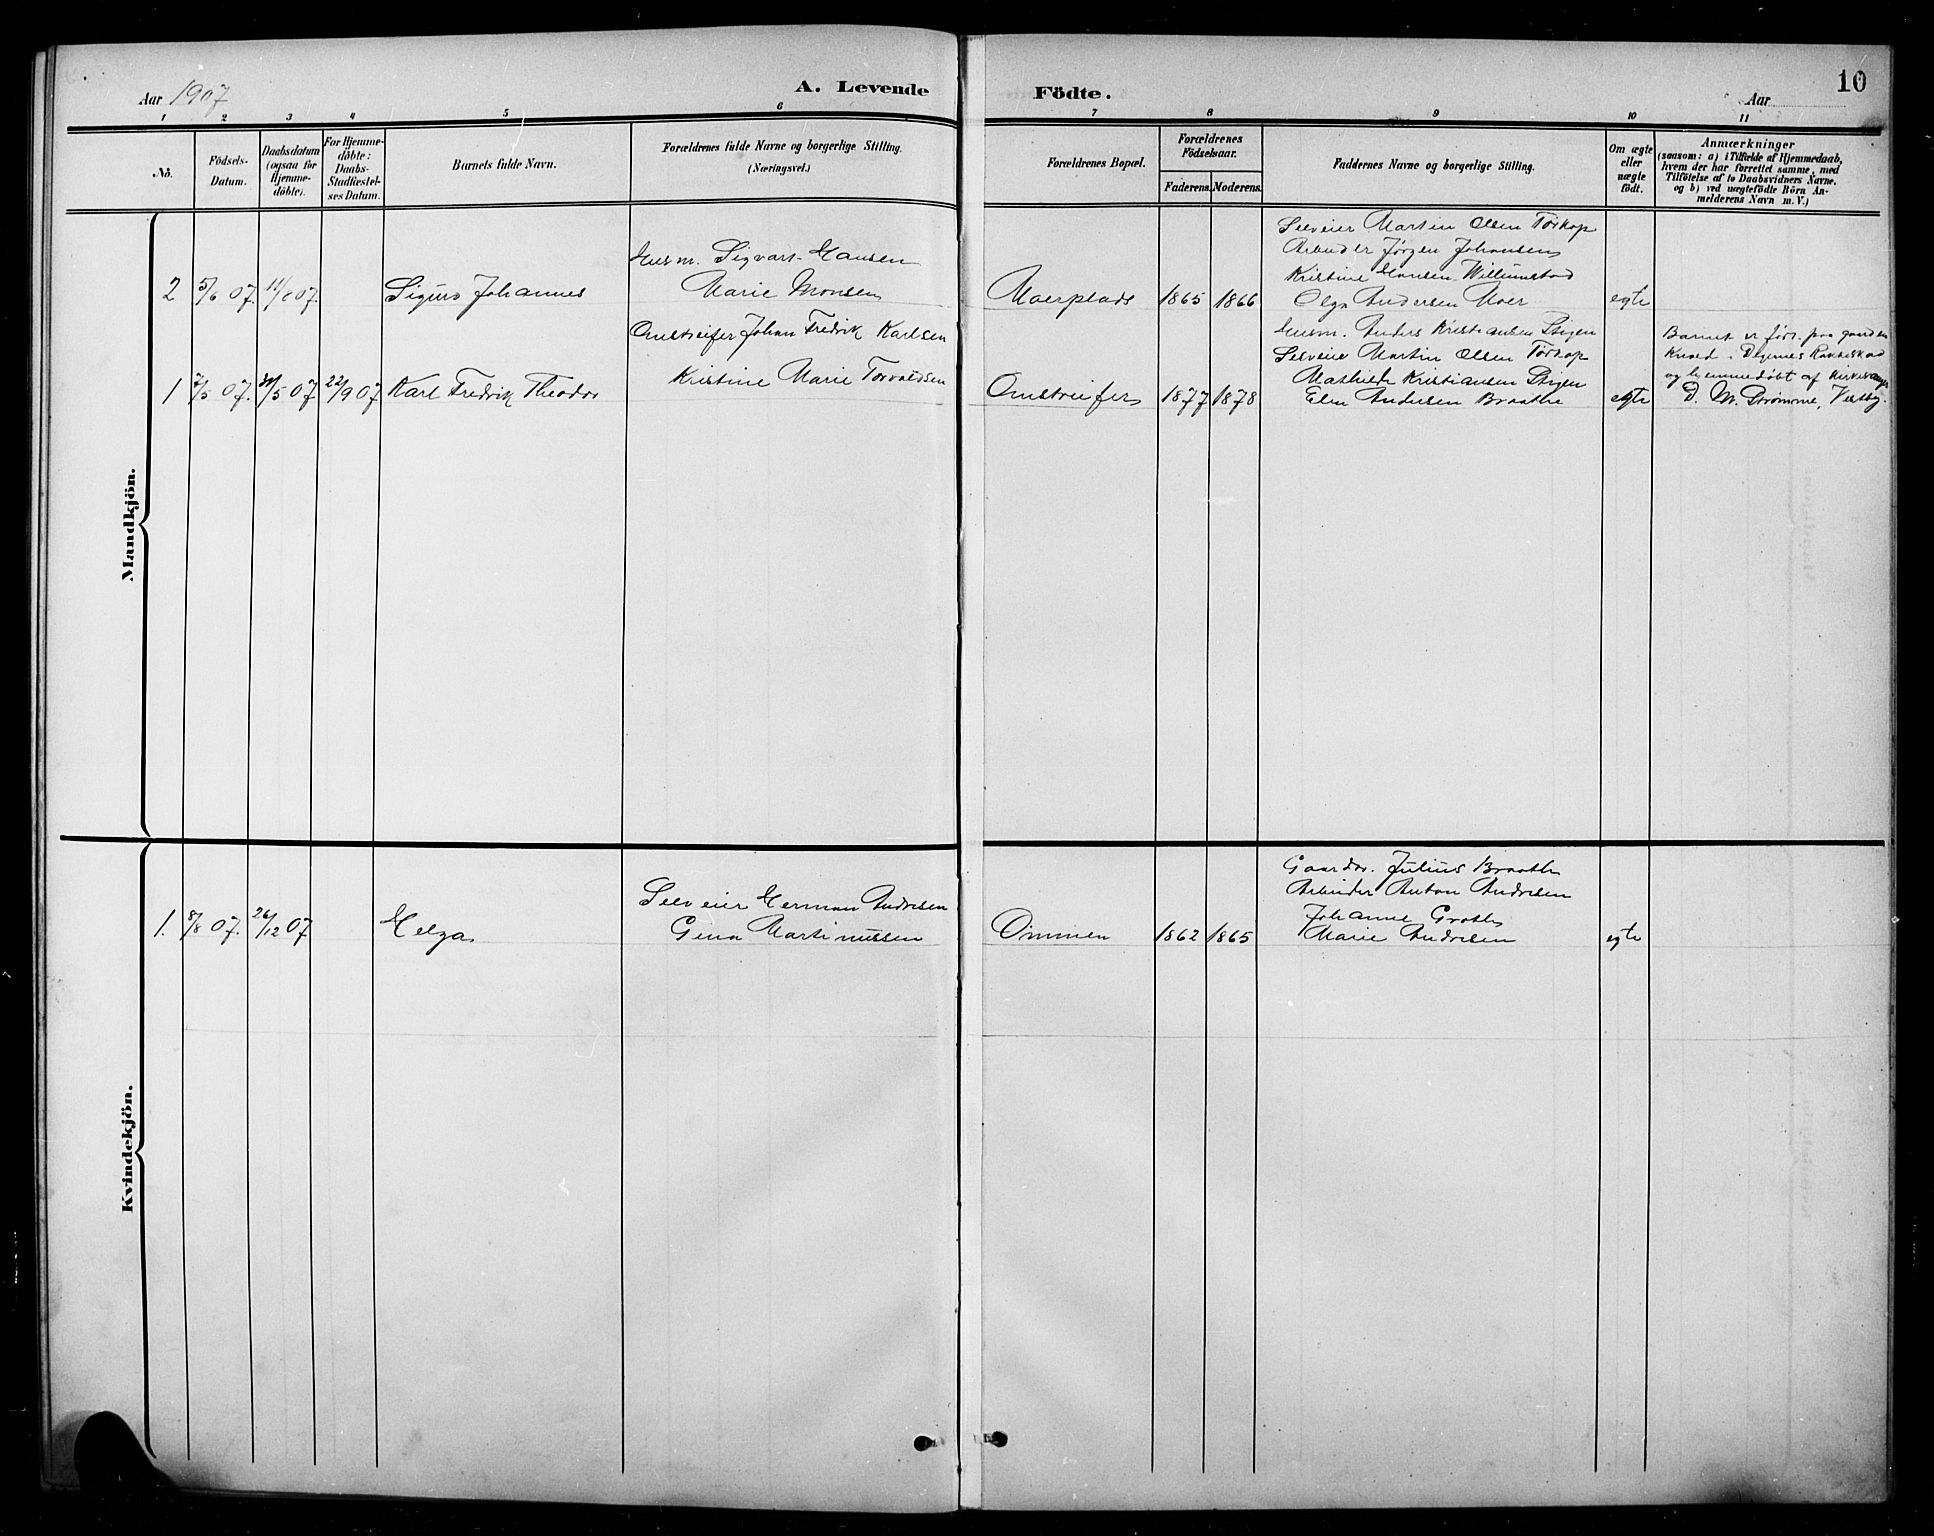 Aar 1907
A. Levende Födte.
Aar
10
1 2 3 4 5 6 7 8 9 10 11
No.
Födsels-
Datum.
Daabsdatum
(ogsaa for
Hjemme-
döbte).
For Hjemme-
döbte:
Daabs-
Stadfæstel-
ses Datum.
Barnets fulde Navn.
Forældrenes fulde Navne og borgerlige Stilling.
(Næringsvei.)
Forældrenes Bopæl.
Forældrenes
Födselsaar.
Faderens. Moderens.
Faddernes Navne og borgerlige Stilling.
Om ægte
eller
uægte
födt.
Anmærkninger
(saasom: a) i Tilfælde af Hjemmedaab,
hvem der har forrettet samme, med
Tilföielse af to Daabsvidners Navne,
og b) ved uægtefödte Börn An-
melderens Navn m. V.)
Mandkjön.
2 5/6 07. 11/8 07. Sigurd Johannes
Husm. Sigvart Hansen
Marie Monsen
Moerplads 1865 1866
Selveier Martin Olsen Torkop
Arbeider Jørgen Johansen
Kristine Hansen Willumstad
Olga Andersen Moer
egte
1 7/5 07. 30/5 07 22/9 07 Karl Fredrik Theodor
Omstreifer Johan Fredrik Karlsen
Kristine Marie Torvaldsen
Omstreifer 1877 1878
Husm. Anders Kristiansen Stigen
Selveier Martin Olsen Torkop
Mathilde Kristiansen Stigen
Elen Andersen Braathe
egte
Barnet er født paa gaarden
og hjemmedøbt af Kirkesanger
D. M. Strømme, Vestby.
Kvindekjön.
1. 8/8 07. 26/12 07 Helga
Selveier Herman Andresen
Gena Martinussen
Ommen 1862 1865
Gaardbr. Julius Braathe
Arbeider Anton Andresen
Johanne Grothe
Marie Andresen
egte